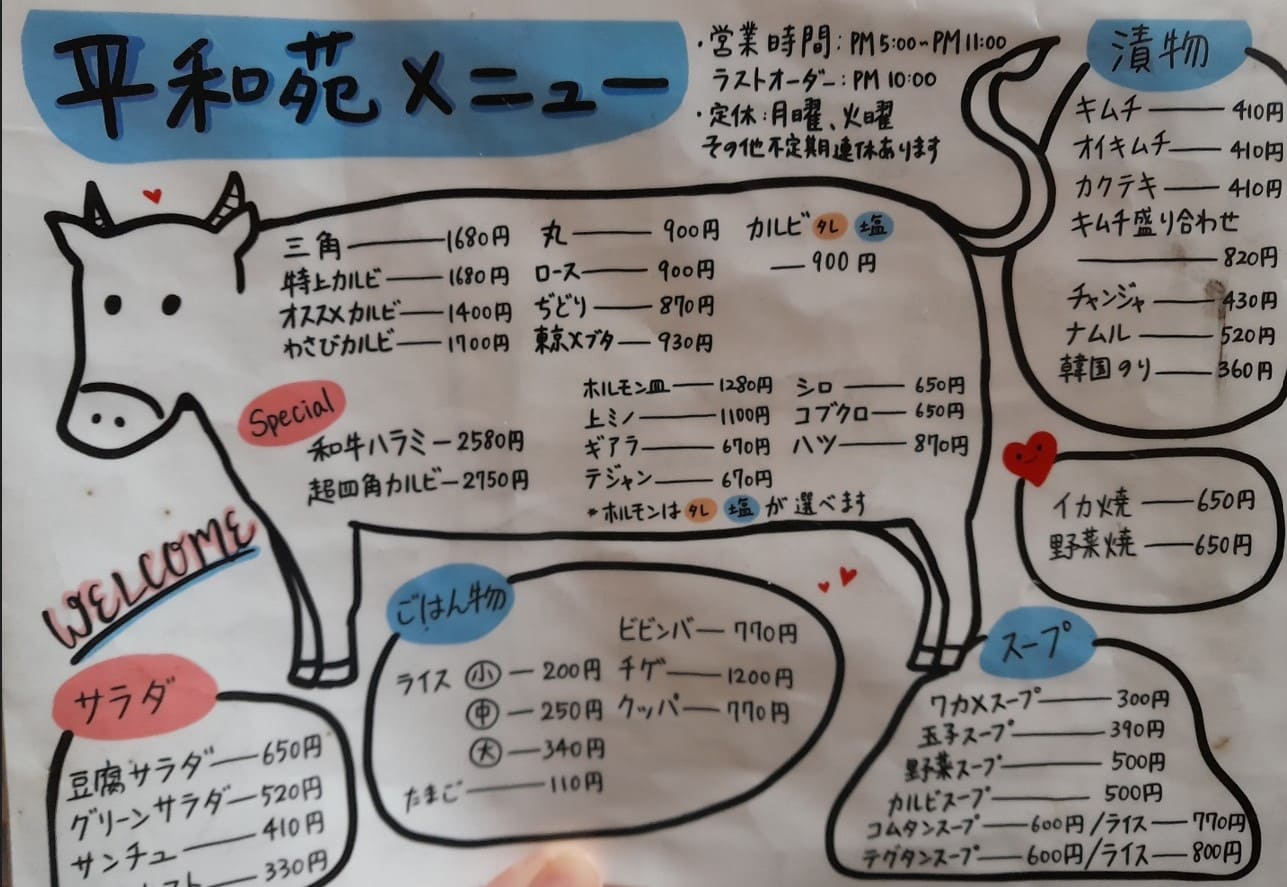 平和苑メニュー
・営業時間：PM5:00~PM11:00
ラストオーダー：PM10:00
・定休：月曜、火曜
その他不定期連休あります
三角 1680円
特上カルビ 1680円
オススメカルビ 1400円
わさびカルビ 1700円
丸 900円
ロース 900円
ぢどり 870円
東京Xブタ 930円
カルビ タレ 塩
900円
Special
和牛ハラミ 2580円
超四角カルビ 2750円
ホルモン皿 1280円
上ミノ 1100円
ギアラ 670円
テジャン 670円
シロ 650円
コブクロ 650円
ハツ 870円
*ホルモンは タレ 塩 が選べます
漬物
キムチ 410円
オイキムチ 410円
カクテキ 410円
キムチ盛り合わせ
820円
チャンジャ 430円
ナムル 520円
韓国のり 360円
イカ焼 650円
野菜焼 650円
WELCOME
サラダ
豆腐サラダ 650円
グリーンサラダ 520円
サンチュ 410円
330円
ごはん物
ライス 小 200円
中 250円
大 340円
たまご 110円
ビビンバ 770円
チゲ 1200円
クッパ 770円
スープ
ワカメスープ 300円
玉子スープ 390円
野菜スープ 500円
カルビスープ 500円
コムタンスープ 600円/ライス 770円
テグタンスープ 600円/ライス 800円